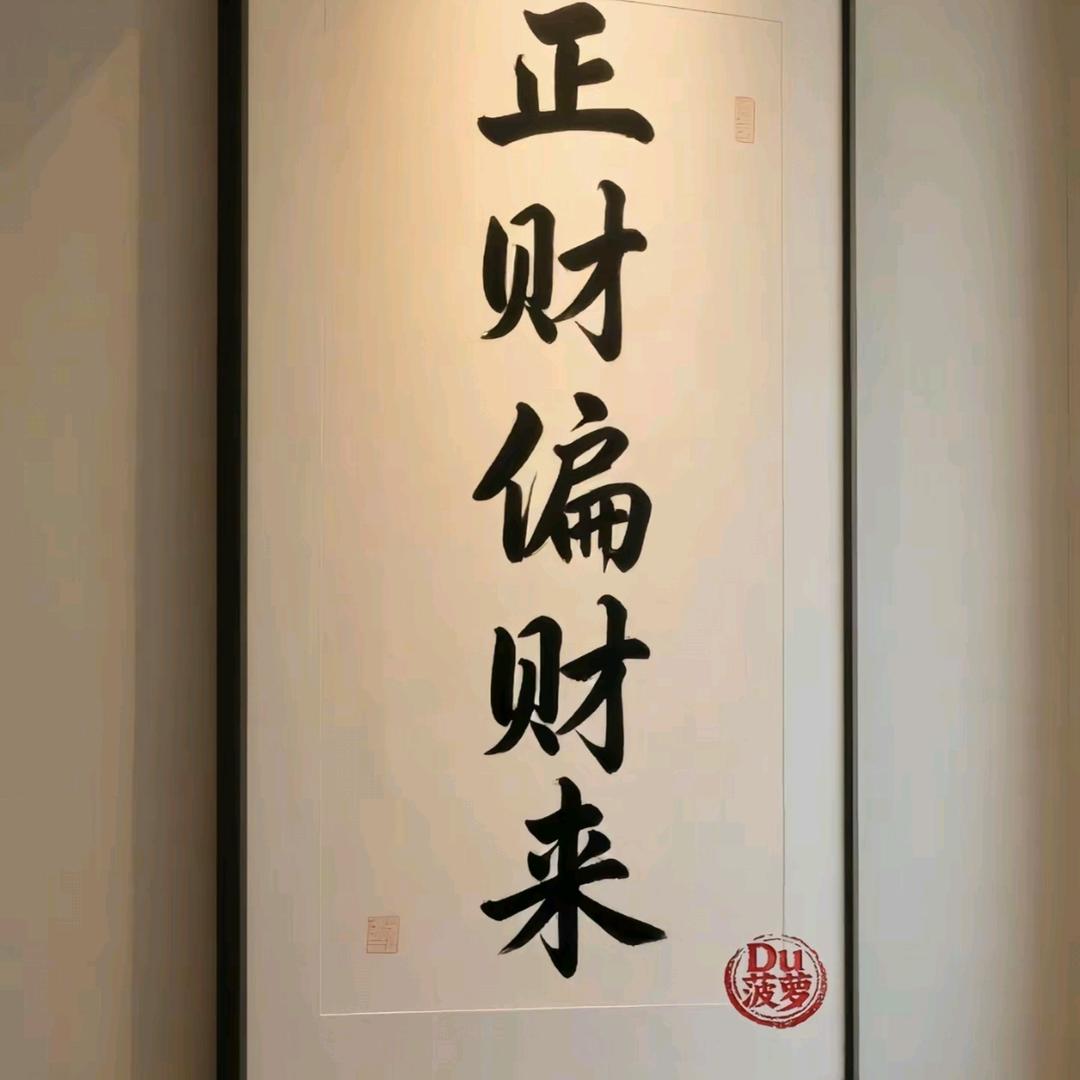 正财偏财来
Du
菠萝